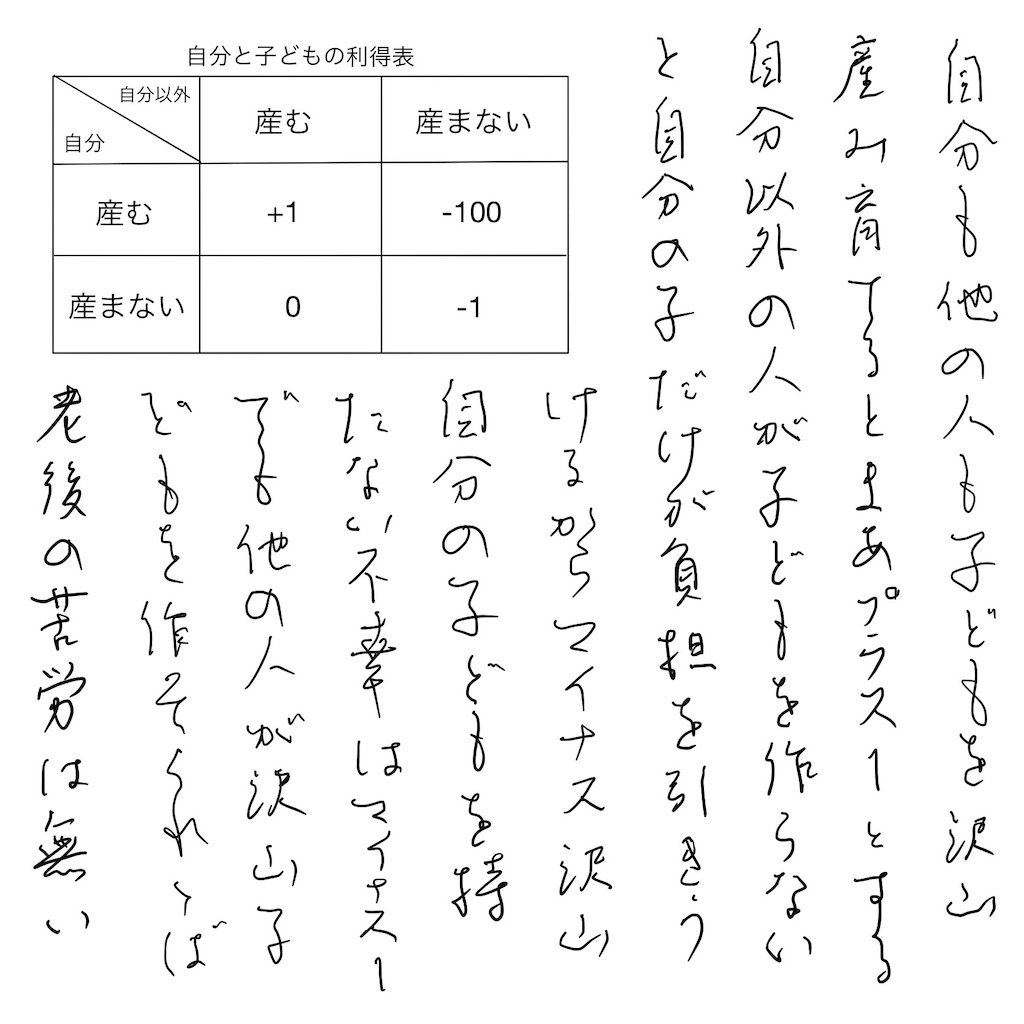 自分と子どもの利得表
自分以外
自分
産む
産まない
産む
+1
-100
産まない
0
-1
自分も他の人も子どもを沢山
産み育てるとまあプラス1とする
自分以外の人が子どもを作らない
と自分の子だけが負担を引きう
けるからマイナス沢山
自分の子どもを持
たない不幸はマイナス1
でも他の人が沢山子
どもを作ってくれれば
老後の苦労は無い